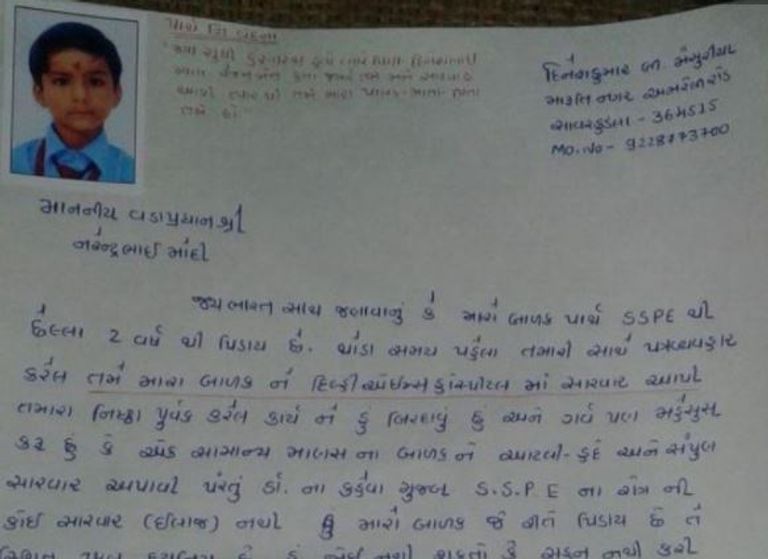 પાર્થ ની વેદના
દિનેશકુમાર બી. મસુરીયા
મારૂતિ નગર અમરેલી રોડ
સાવરકુંડલા - 364515
Mo. No - 9228773700
માનનીય વડાપ્રધાન શ્રી
નરેન્દ્રભાઈ મોદી
જય ભારત સાથ જણાવાનું કે મારો બાળક પાર્થ SSPE થી
છેલ્લા 2 વર્ષ થી પિડાય છે. થોડા સમય પહેલા તમારી સાથે પત્રવ્યવહાર
કરેલ તમે મારા બાળક ને દિલ્હી એઈમ્સ હોસ્પીટલ માં સારવાર આપી
તમારા નિષ્ઠા પુર્વક કરેલ કાર્ય ને હું બિરદાવું છું અને ગર્વ પણ મહેસુસ
કરૂ છું કે એક સામાન્ય માણસ ના બાળક ને આટલી હદે અને સંપુર્ણ
સારવાર અપાવી પરંતું ડૉ. ના કહેવા મુજબ S.S.P.E ના રોગ ની
કોઈ સારવાર (ઈલાજ) નથી હું મારો બાળક જે રીતે પિડાય છે તે